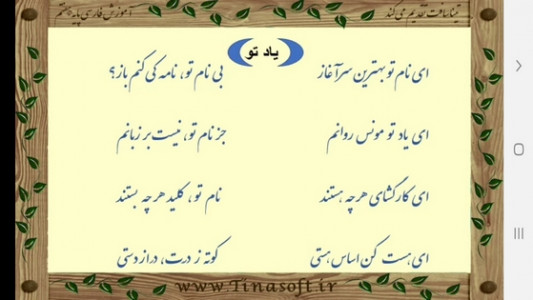 تیناسافت تقدیم می‌کند
آموزش فارسی پایه هشتم
یاد تو
ای نام تو بهترین سرآغاز
بی نام تو، نامه کی کنم باز؟
ای یاد تو مونس روانم
جز نام تو، نیست بر زبانم
ای کارگشای هر چه هستند
نام تو، کلید هر چه بستند
ای هست کن اساس هستی
کوته ز درت، درازدستی
www.Tinasoft.ir